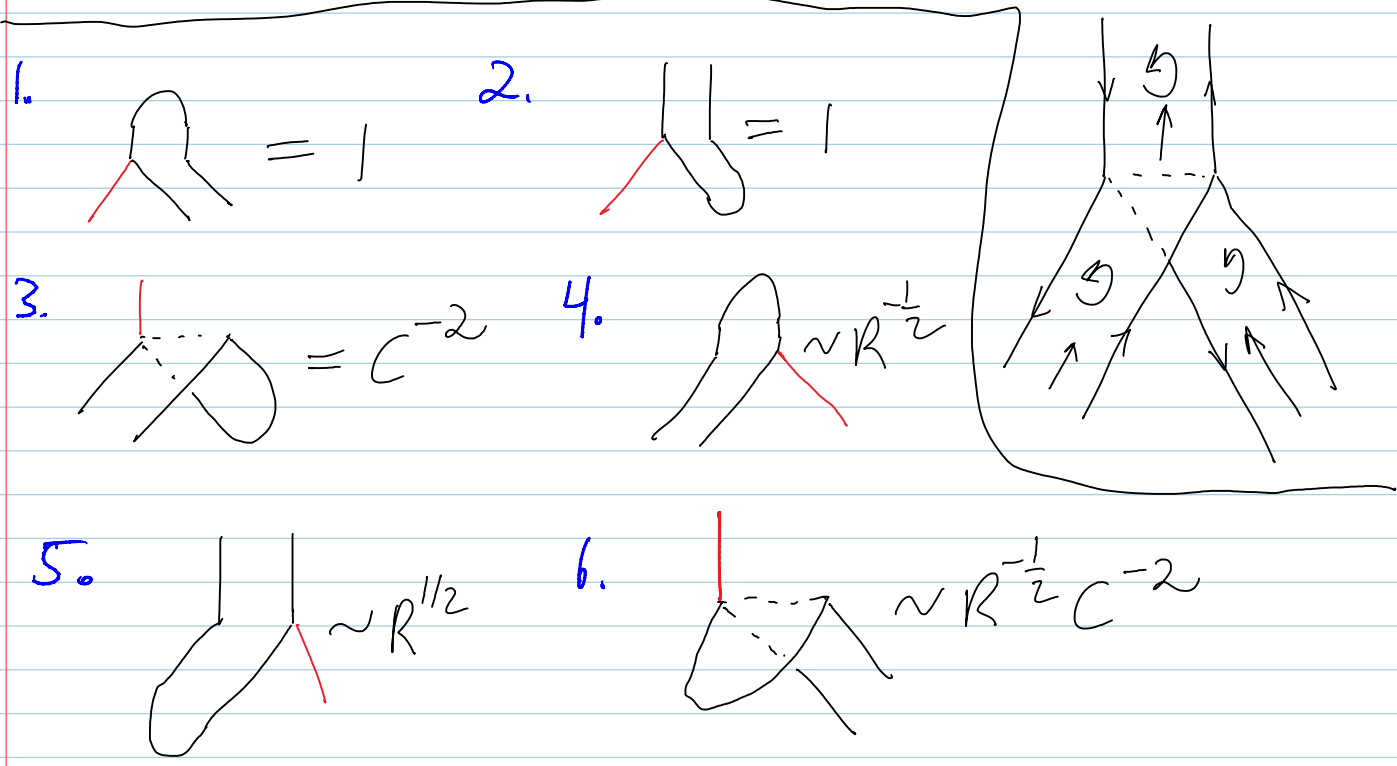 1. = 1
2. = 1
3. = C^{-2}
4. ~R^{-\frac{1}{2}}
5. ~R^{1/2}
6. ~R^{-\frac{1}{2}} C^{-2}